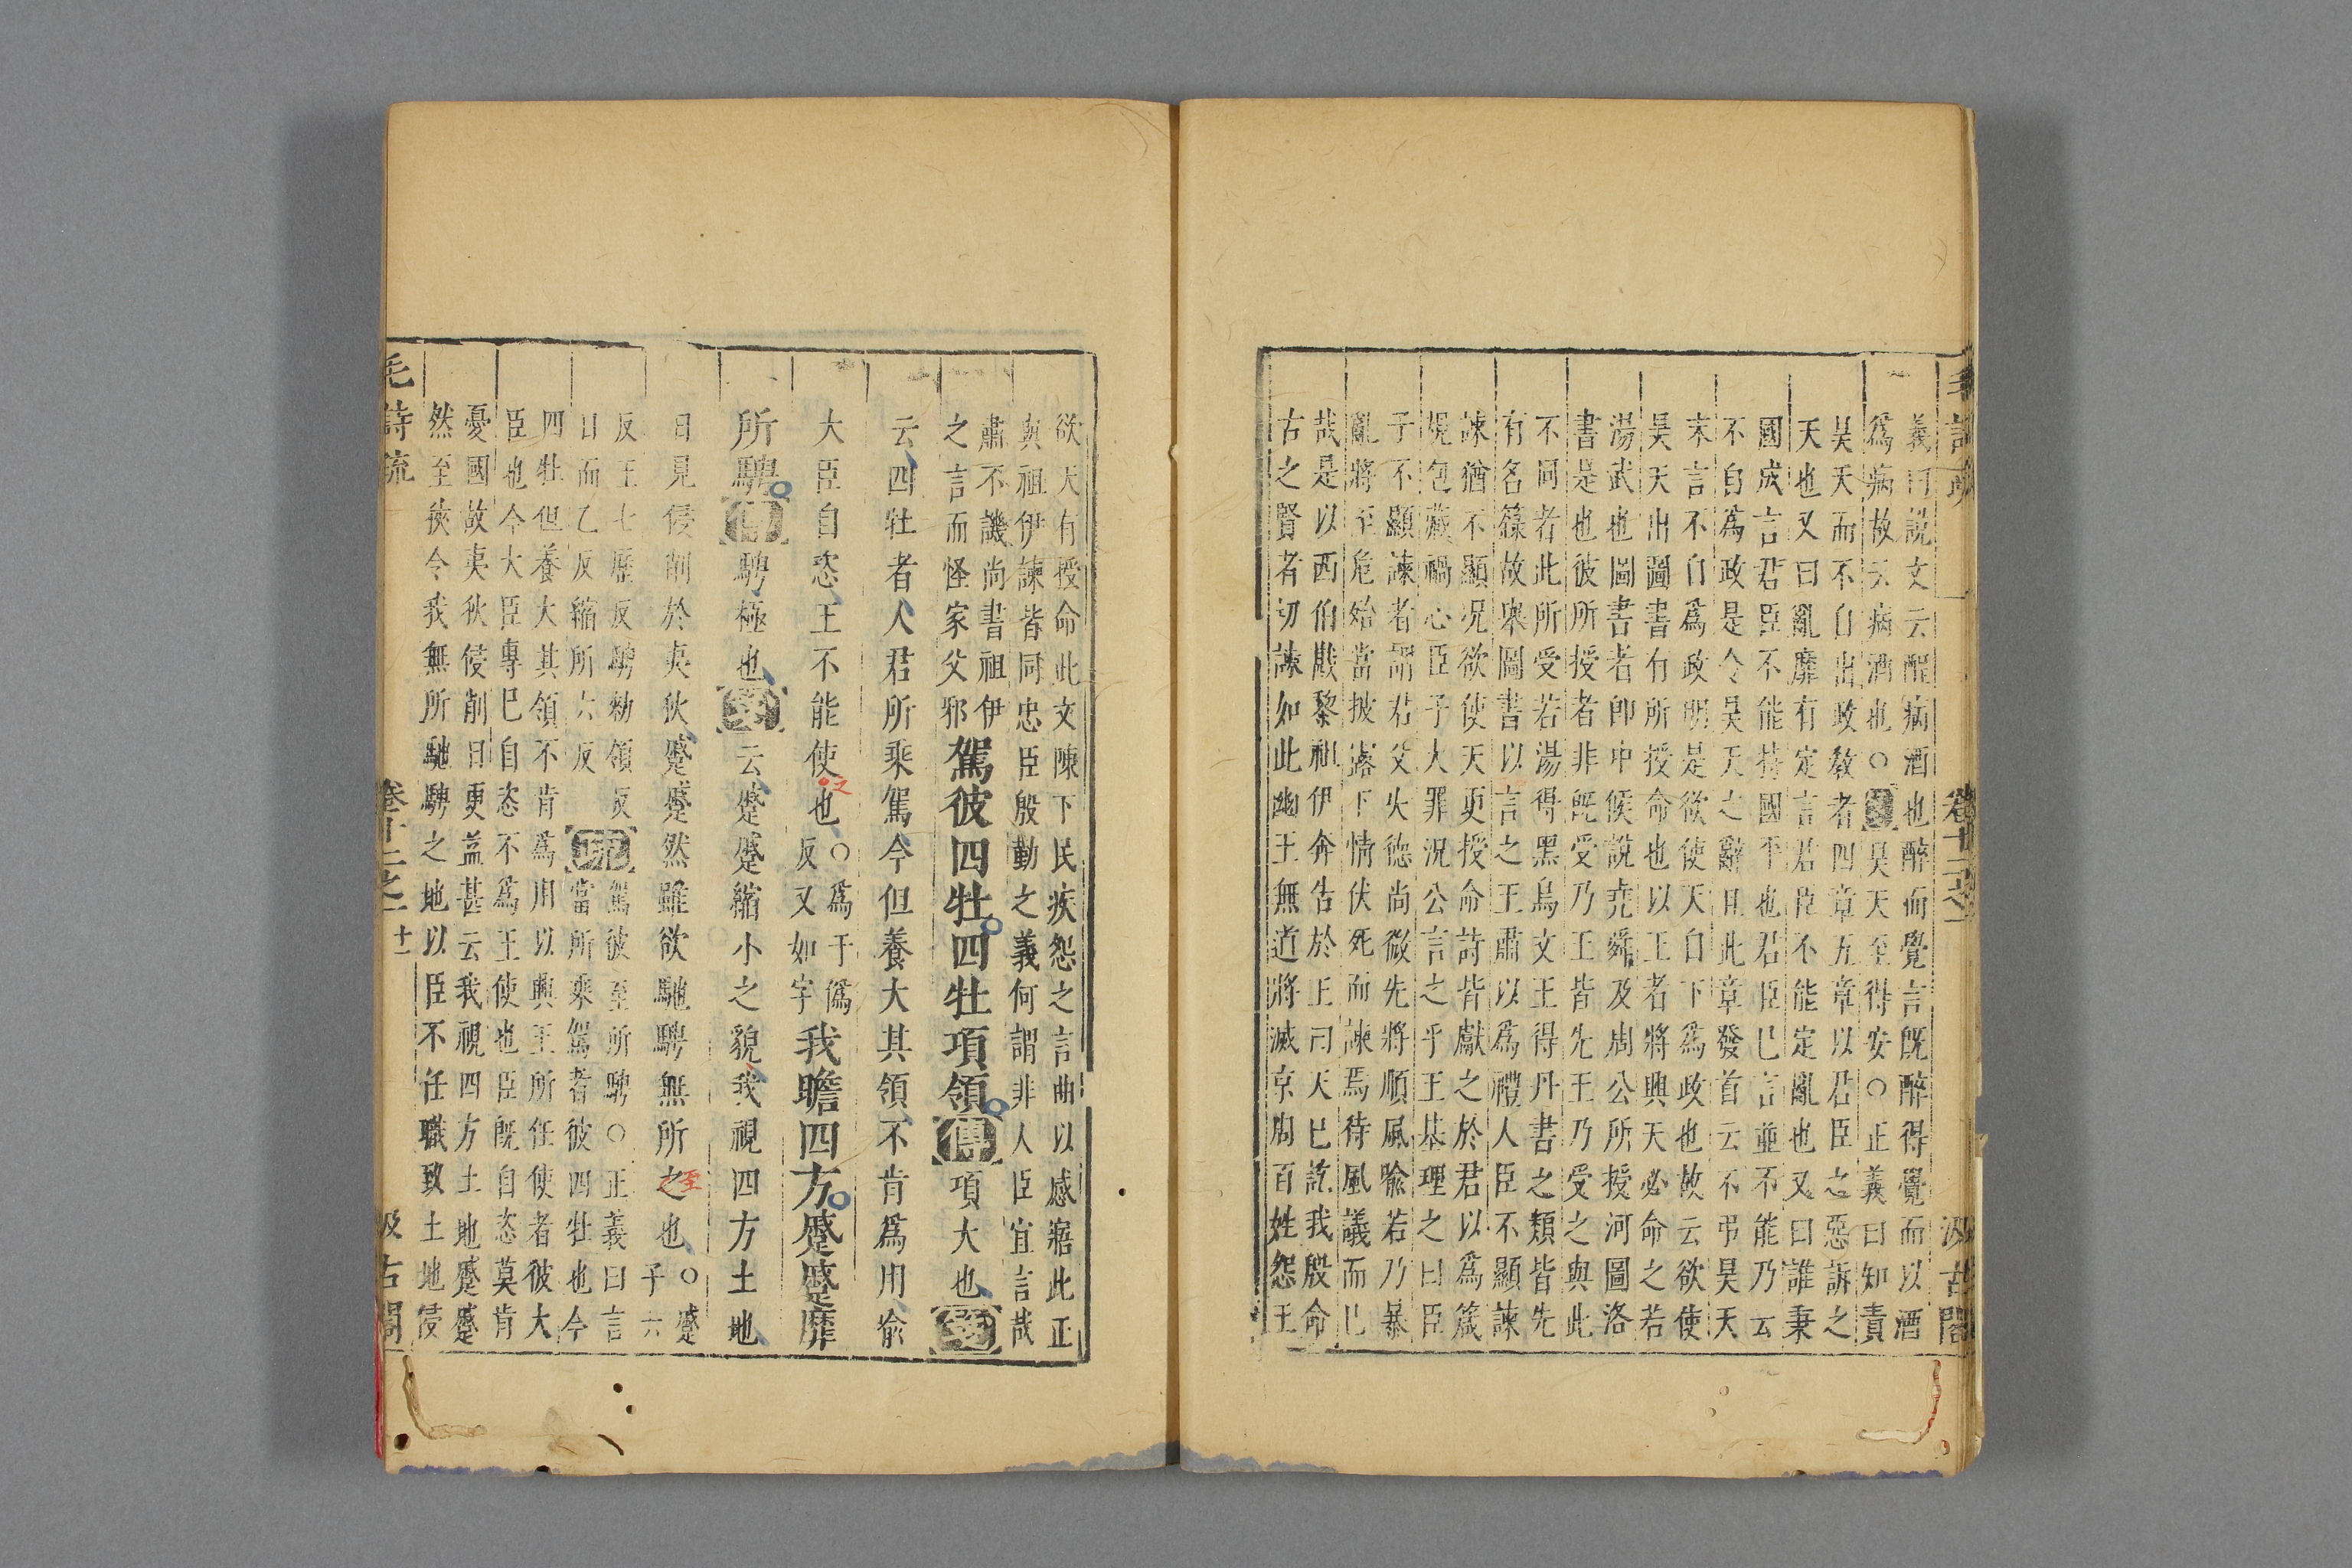 義曰說文云酲病酒也醉而覺言既醉得覺而以酒
爲病故云病酒也○疏昊天至得安○正義曰知責
昊天而不自出政敎者四章五章以君臣之惡訴之
天也又曰亂靡有定言君臣不能定亂也又曰誰秉
國成言君臣不能持國平也君臣巳言並不能乃云
不自爲政是令昊天之辭且此章發首云不弔昊天
末言不自爲政明是欲使天自下爲政也故云欲使
昊天出圖書有所授命也以王者將興天必命之若
湯武也圖書者卽中候說堯舜及周公所授河圖洛
書是也彼所授者非既受乃王皆先王乃受之與此
不同者此所受若湯得黑烏文王得丹書之類皆先
有名籙故舉圖書以言之王肅以爲禮人臣不顯諫
諫猶不顯况欲使天更授命詩皆獻之於君以爲箴
規包藏禍心臣子大罪况公言之乎王基理之曰臣
子不顯諫者謂君父失德尚微先將順風喩若乃暴
亂將至危殆當披露下情伏死而諫焉待風議而巳
哉是以西伯戡黎祖伊奔告於王曰天巳訖我殷命
古之賢者切諫如此幽王無道將滅京周百姓怨王
欲天有授命此文陳下民疾怨之言曲以感寤此正
與祖伊諫皆同忠臣殷勤之義何謂非人臣宜言哉
肅不譏尚書祖伊
之言而怪家父邪駕彼四牡四牡項領傳項大也箋
云四牡者人君所乘駕今但養大其領不肯爲用喩
大臣自恣王不能使之也○爲于僞
反又如字我瞻四方蹙蹙靡
所騁傳騁極也箋云蹙蹙縮小之貌我視四方土地
日見侵削於夷狄蹙蹙然雖欲馳騁無所之至也○蹙
子六
反王七歷反騁勑領反
日而乙反縮所六反疏駕彼至所騁○正義曰言
當所乘駕者彼四牡也今
四牡但養大其領不肯爲用以興王所任使者彼大
臣也今大臣專巳自恣不爲王使也臣既自恣莫肯
憂國故夷狄侵削日更益甚云我視四方土地蹙蹙
然至狹令我無所馳騁之地以臣不任職致土地侵
毛詩疏 卷十二之一 十一 汲古閣